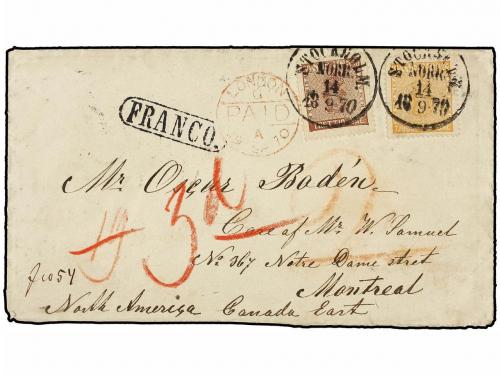 STOCKHOLM
NORR.
14
9
1870
STOCKHOLM
NORR.
14
9
1870
LONDON
PAID
A
70
FRANCO.
3d
Mr Oscar Badén
Care of Mr W. Samuel
No 367 Notre Dame street
Montreal
fco 54
North America Canada East